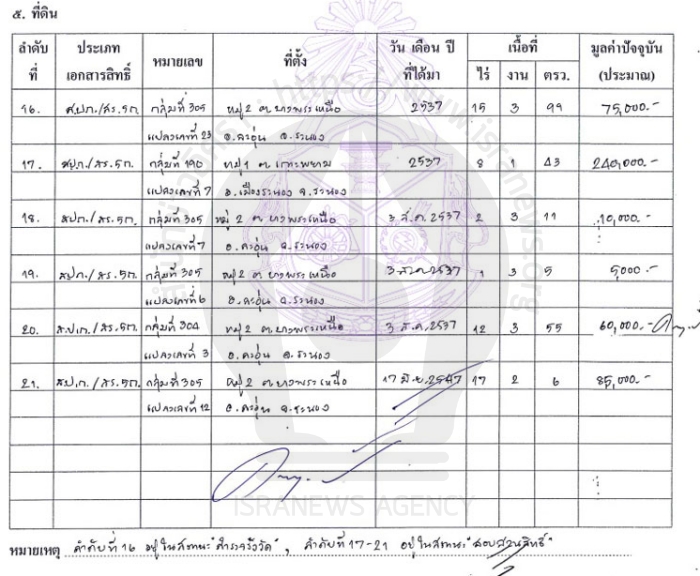 ๕. ที่ดิน
ลำดับที่ ประเภทเอกสารสิทธิ์ หมายเลข ที่ตั้ง วัน เดือน ปี ที่ได้มา เนื้อที่ ไร่ งาน ตรว. มูลค่าปัจจุบัน (ประมาณ)
16. ส.ป.ก./สร.5ก. กลุ่มที่ 305 หมู่ 2 ต.บางพระเหนือ 2537 15 3 99 75,000.-
แปลงเลขที่ 23 อ.ละอุ่น จ.ระนอง
17. สปก./สร.5ก. กลุ่มที่ 190 หมู่ 1 ต.เกาะพยาม 2537 8 1 43 240,000.-
แปลงเลขที่ 7 อ.เมืองระนอง จ.ระนอง
18. สปก./สร.5ก. กลุ่มที่ 305 หมู่ 2 ต.บางพระเหนือ 3 ส.ค.2537 2 3 11 10,000.-
แปลงเลขที่ 7 อ.ละอุ่น จ.ระนอง
19. สปก./สร.5ก. กลุ่มที่ 305 หมู่ 2 ต.บางพระเหนือ 3 ส.ค.2537 1 3 5 5,000.-
แปลงเลขที่ 6 อ.ละอุ่น จ.ระนอง
20. ส.ป.ก./สร.5ก. กลุ่มที่ 304 หมู่ 2 ต.บางพระเหนือ 3 ส.ค.2537 12 3 55 60,000.-
แปลงเลขที่ 3 อ.ละอุ่น จ.ระนอง
21. ส.ป.ก./สร.5ก. กลุ่มที่ 305 หมู่ 2 ต.บางพระเหนือ 17 มิ.ย.2547 17 2 6 85,000.-
แปลงเลขที่ 12 อ.ละอุ่น จ.ระนอง
ISRANEWS AGENCY
หมายเหตุ ลำดับที่ 16 อยู่ในสถานะ "สำรวจรังวัด", ลำดับที่ 17-21 อยู่ในสถานะ "สอบสวนสิทธิ์"